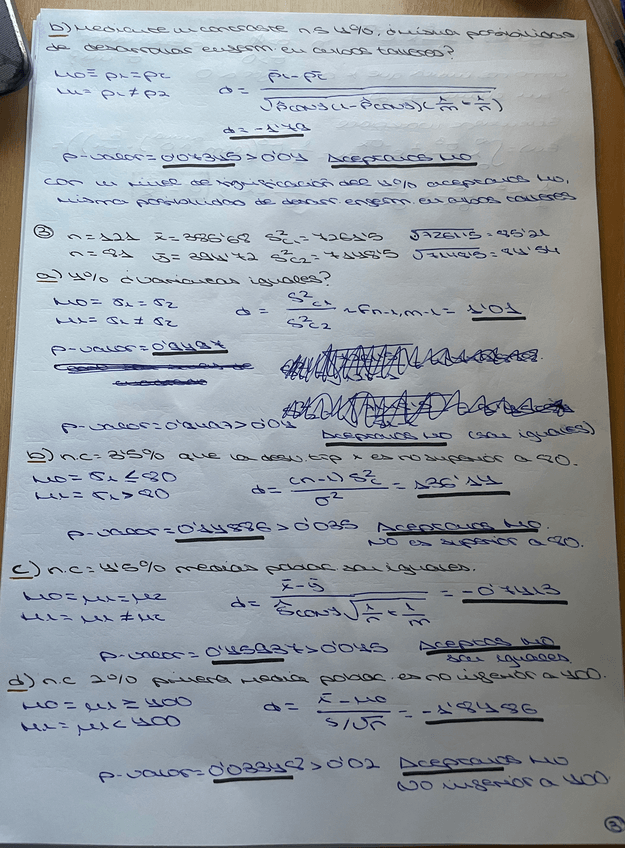 b) Mediante un contraste n.s 4%, ¿misma posibilidad
de desarrollar enferm. en ambos talleres?
H0 ≡ p1 = p2
H1 ≡ p1 ≠ p2
d = p̄1 - p̄2 / √p̂conj(1-p̂conj)(1/m + 1/n)
d = -1'79
p-valor = 0'07345 > 0'04 Aceptamos H0
Con un nivel de significación del 4% aceptamos H0,
misma posibilidad de desarr. enferm. en ambos talleres
③ n = 121 x̄ = 386'68 S²c1 = 7261'5 √7261'5 = 85'21
n = 81 ȳ = 394'72 S²c2 = 7148'5 √7148'5 = 84'54
a) 4% ¿varianzas iguales?
H0 = σ1 = σ2
H1 = σ1 ≠ σ2
d = S²c1 / S²c2 ~ Fn-1, m-1 = 1'01
p-valor = 0'9497
p-valor = 0'9497 > 0'04
Aceptamos H0 (son iguales)
b) n.c = 3'5% que la desv. tip x es no superior a 80.
H0 = σ1 ≤ 80
H1 = σ1 > 80
d = (n-1) S²c / σ² = 136'14
p-valor = 0'14886 > 0'035 Aceptamos H0.
NO es superior a 80.
c) n.c = 4'5% medias poblac. son iguales.
H0 = μ1 = μ2
H1 = μ1 ≠ μ2
d = x̄ - ȳ / Ŝconj √1/n + 1/m = -0'7413
p-valor = 0'45937 > 0'045 Aceptas H0
son iguales
d) n.c 2% primera media poblac. es no inferior a 400.
H0 = μ1 ≥ 400
H1 = μ1 < 400
d = x̄ - μ0 / S/√n = -1'8486
p-valor = 0'03348 > 0'02 Aceptamos H0
NO inferior a 400